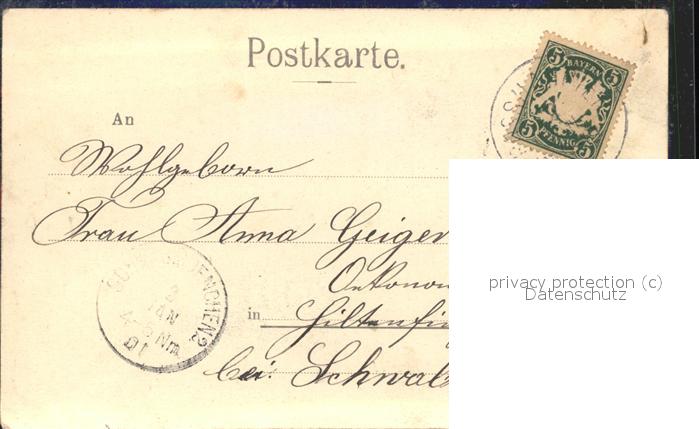 Postkarte.
5 BAYERN 5
5 PFENNIG 5
An
Wohlgeborn
Frau Anna Geiger
Oekonom
in Hiltenfi
bei Schwab
3
JAN
Nm
01
privacy protection (c)
Datenschutz